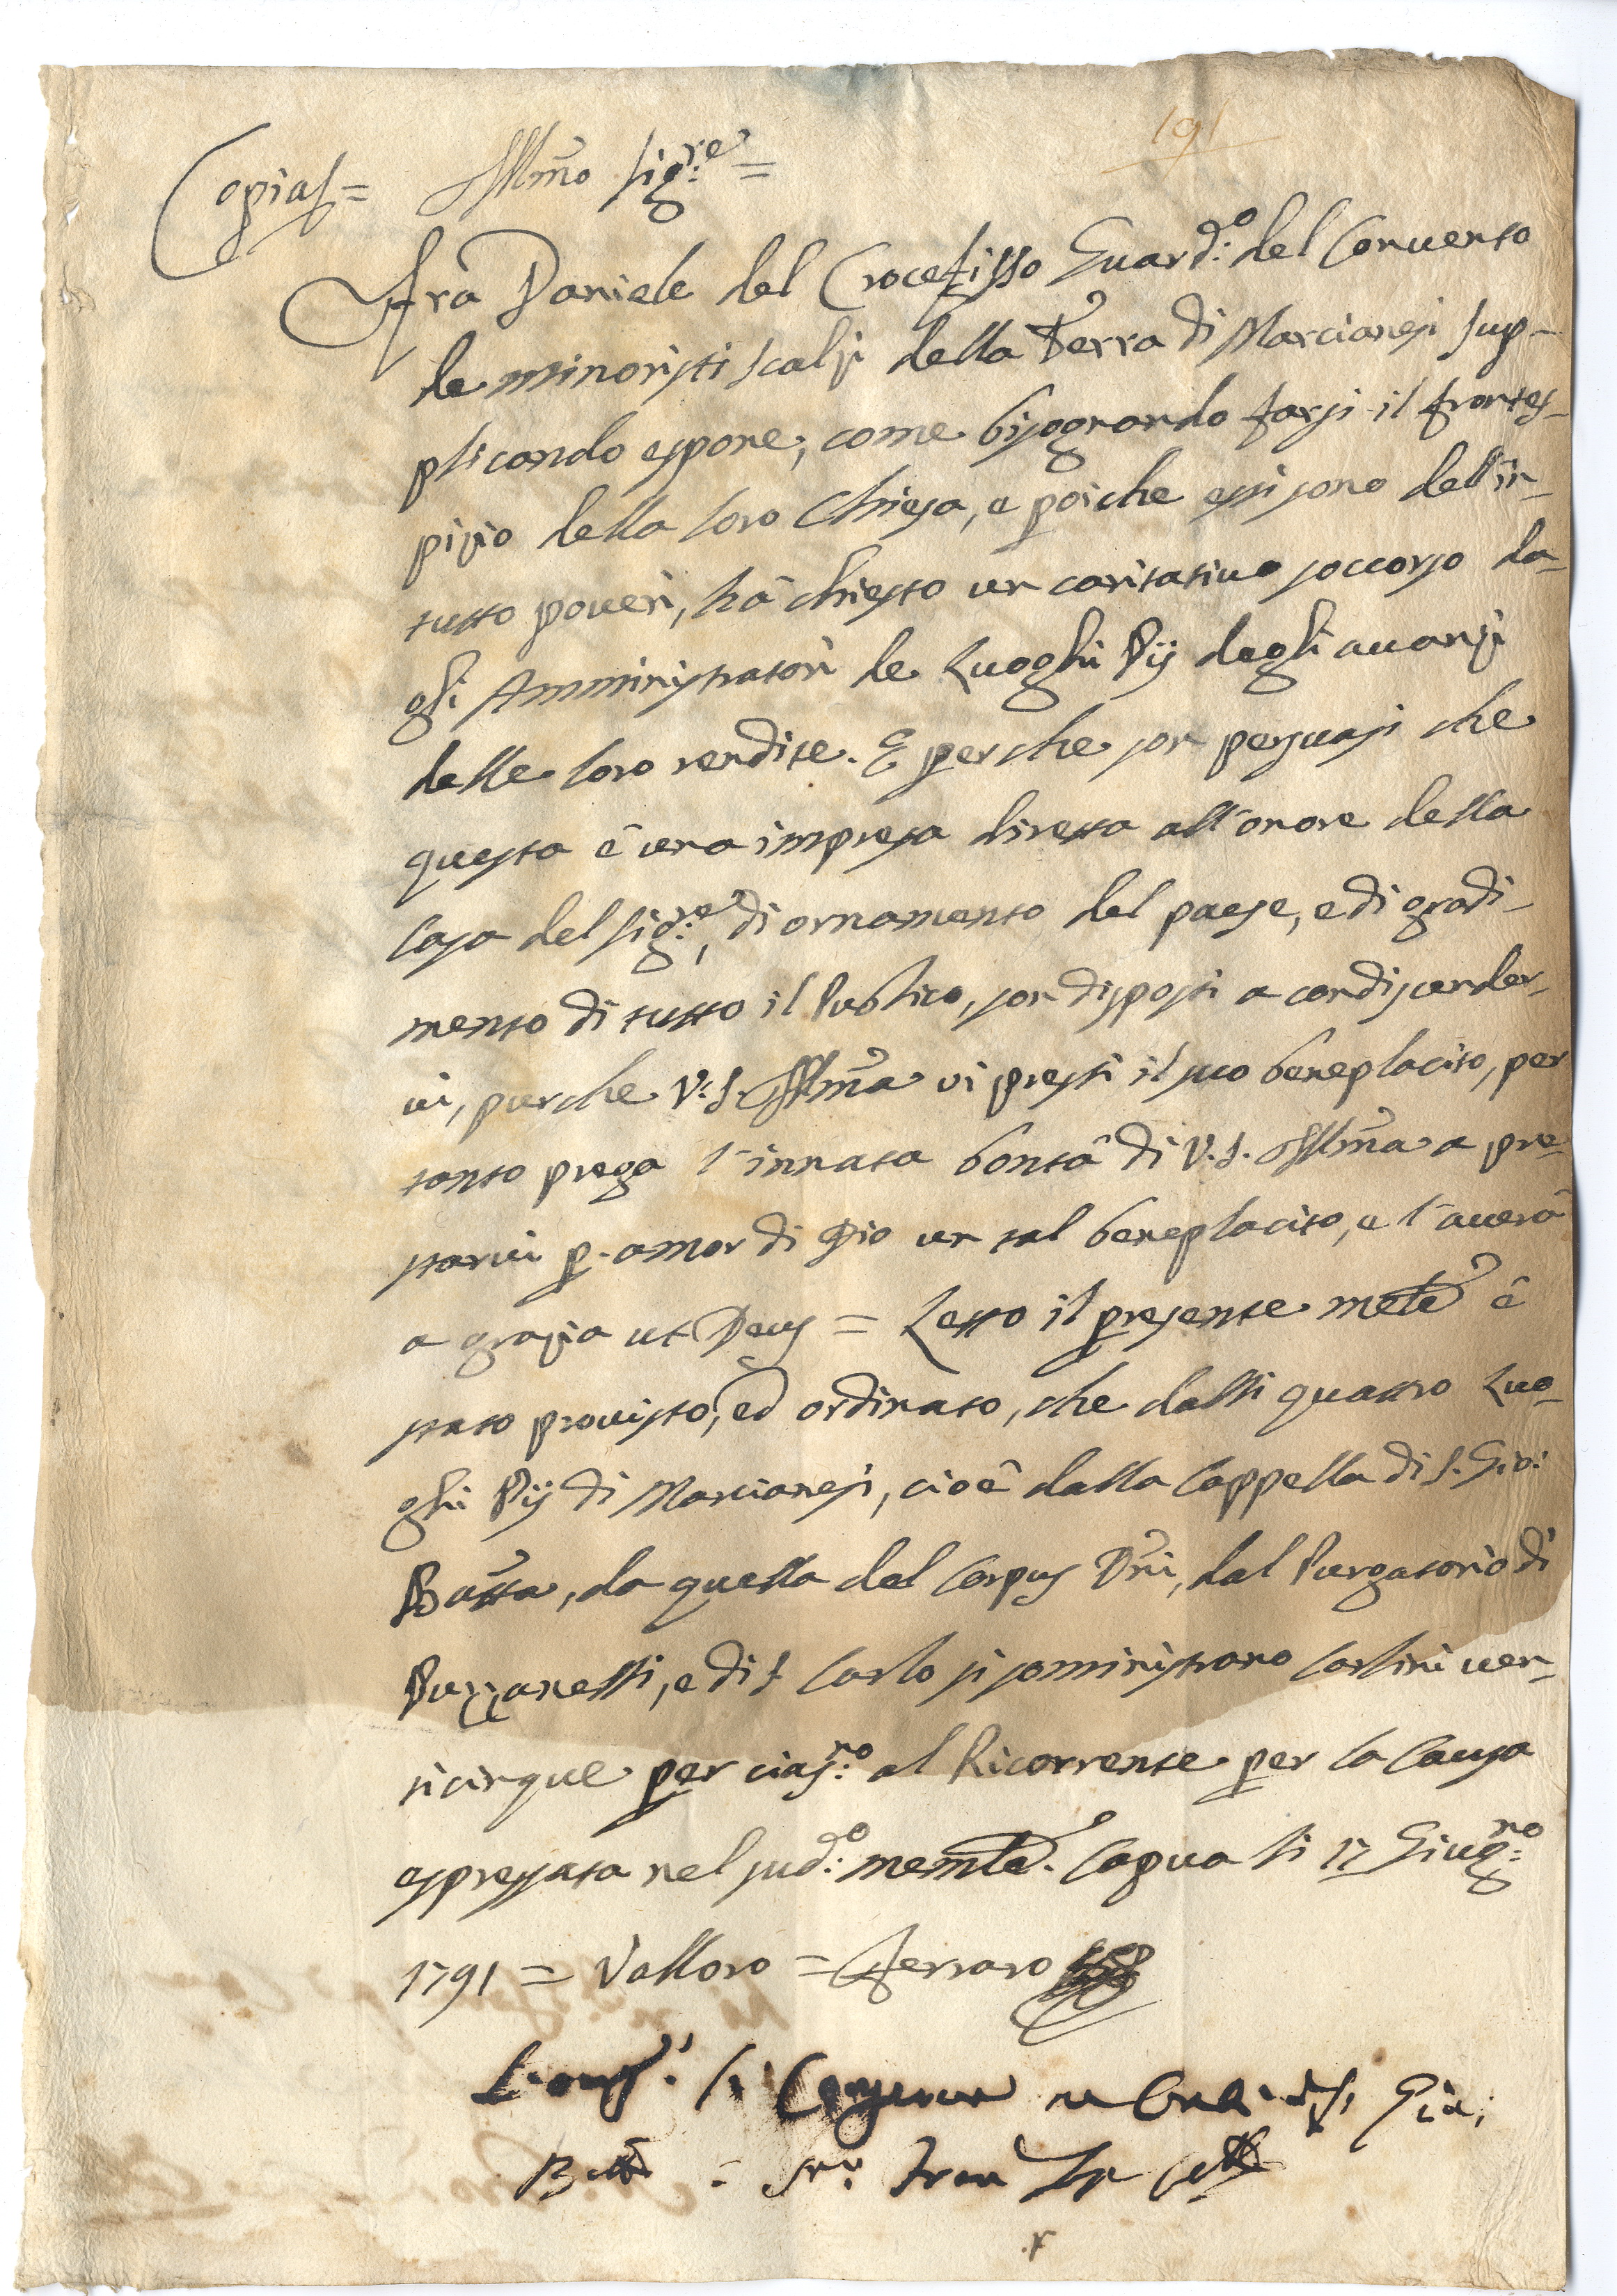 191
Copia = Ill̃mo Sig:re =
Frà Daniele del Crocefisso Guard:o del Convento
de minoristi scalzi della Terra di Marcianesi sup-
plicando espone, come bisognando farsi il frontes-
pizio della loro Chiesa, e poiche essi sono dell'in-
tutto poveri, hà chiesto un caritativo soccorso da-
gli Amministratori de Luoghi Pij degli avanzi
delle loro rendite. E perche son persuasi che
questa è una impresa diretta all'onore della
Casa del Sig:re, di ornamento del paese, e di gradi-
mento di tutto il Publico, son disposti a condiscender-
vi, purche V. S. Ill̃ma vi presti il suo beneplacito, per
tanto prega l'innata bontà di V. S. Ill̃ma a pre-
starvi p. amor di Dio un tal beneplacito, e l'averà
a grazia ut Deus = Letto il presente mẽle è
stato provisto, ed ordinato, che dalli quattro Luo-
ghi Pij di Marcianesi, cioè dalla Cappella di S. Gio:
Batta, da quella del Corpus Dñi, dal Purgatorio di
Puzzanelli, e di S. Carlo si somministrano Carlini ven-
ticinque per cias:no al Ricorrente per la causa
espressata nel sud:o memle. Capua li 17 Giug:no
1791 = Valloro = Ferraro
Gio:
Batta =